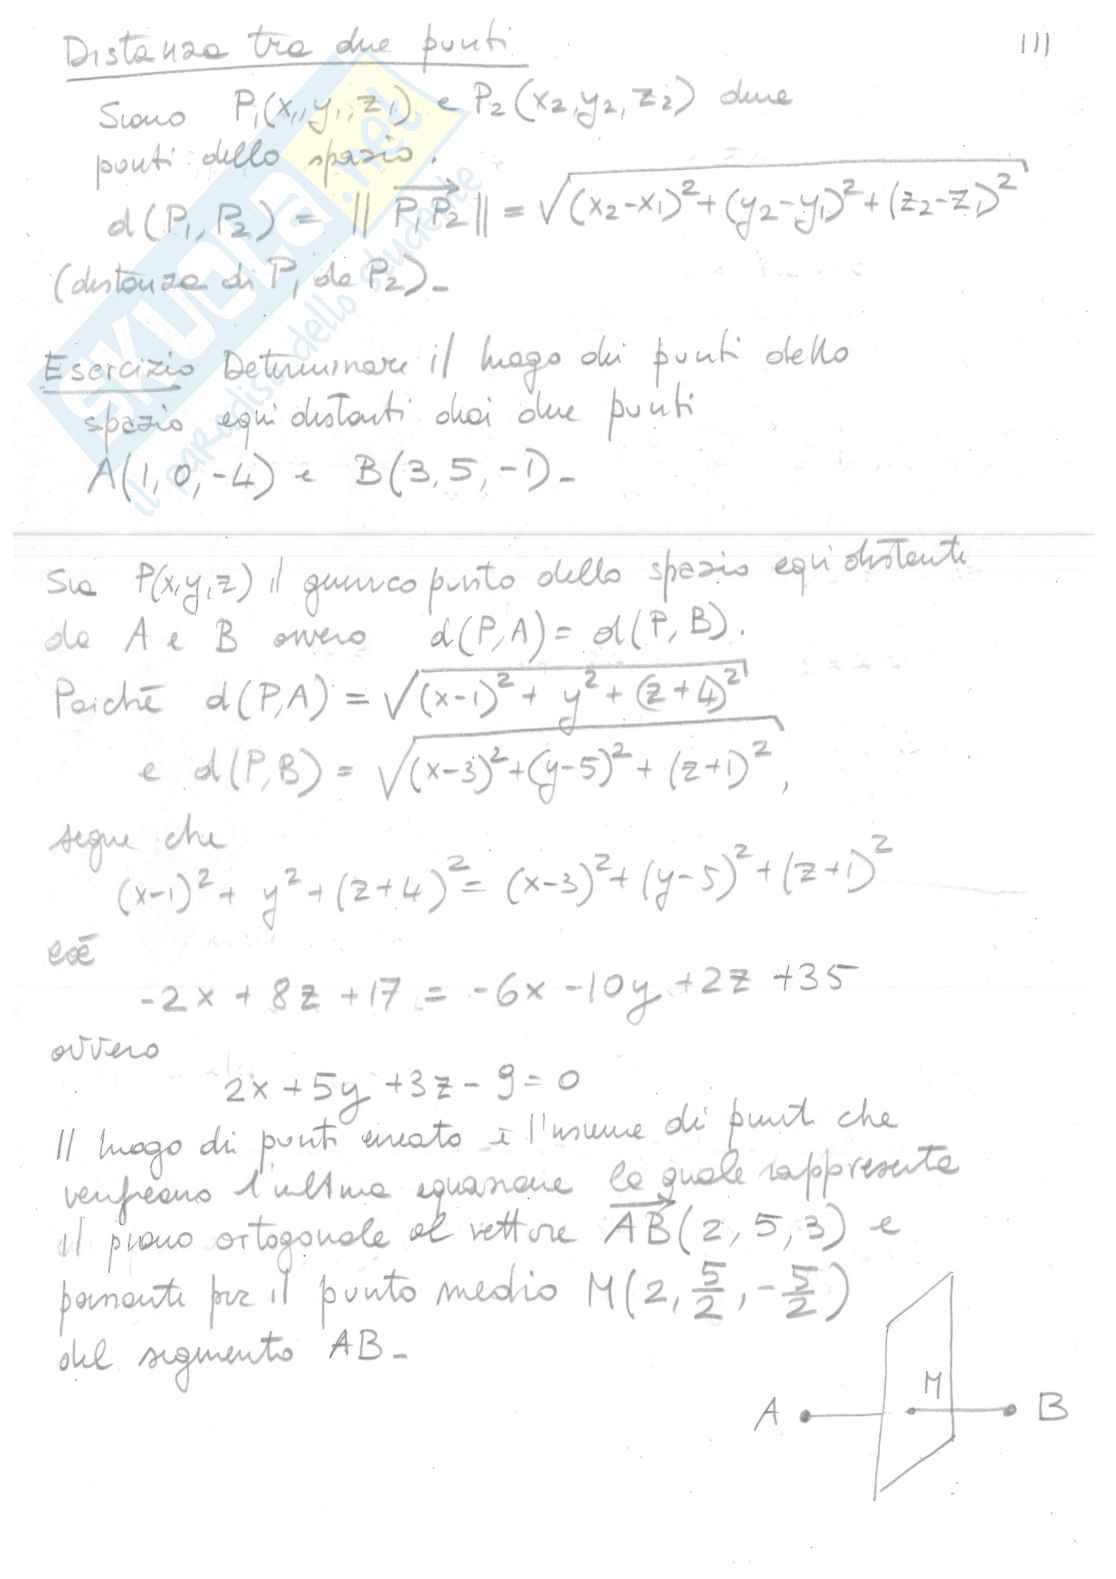 Distanza tra due punti
111
Siano P₁(x₁,y₁,z₁) e P₂(x₂,y₂,z₂) due
punti dello spazio.
d(P₁,P₂) = ‖P₁P₂‖ = √(x₂-x₁)²+(y₂-y₁)²+(z₂-z₁)²
(distanza di P₁ da P₂).
Esercizio Determinare il luogo dei punti dello
spazio equidistanti dai due punti
A(1,0,-4) e B(3,5,-1).
Sia P(x,y,z) il generico punto dello spazio equidistante
da A e B ovvero d(P,A)=d(P,B).
Poiché d(P,A)=√(x-1)²+y²+(z+4)²
e d(P,B)=√(x-3)²+(y-5)²+(z+1)²,
segue che
(x-1)²+y²+(z+4)²=(x-3)²+(y-5)²+(z+1)²
cioè
-2x+8z+17=-6x-10y+2z+35
ovvero
2x+5y+3z-9=0
Il luogo di punti cercato è l'insieme di punti che
verificano l'ultima equazione la quale rappresenta
il piano ortogonale al vettore AB(2,5,3) e
passante per il punto medio M(2,5/2,-5/2)
del segmento AB.
A M B
SKUOLA.net
il paradiso dello studente